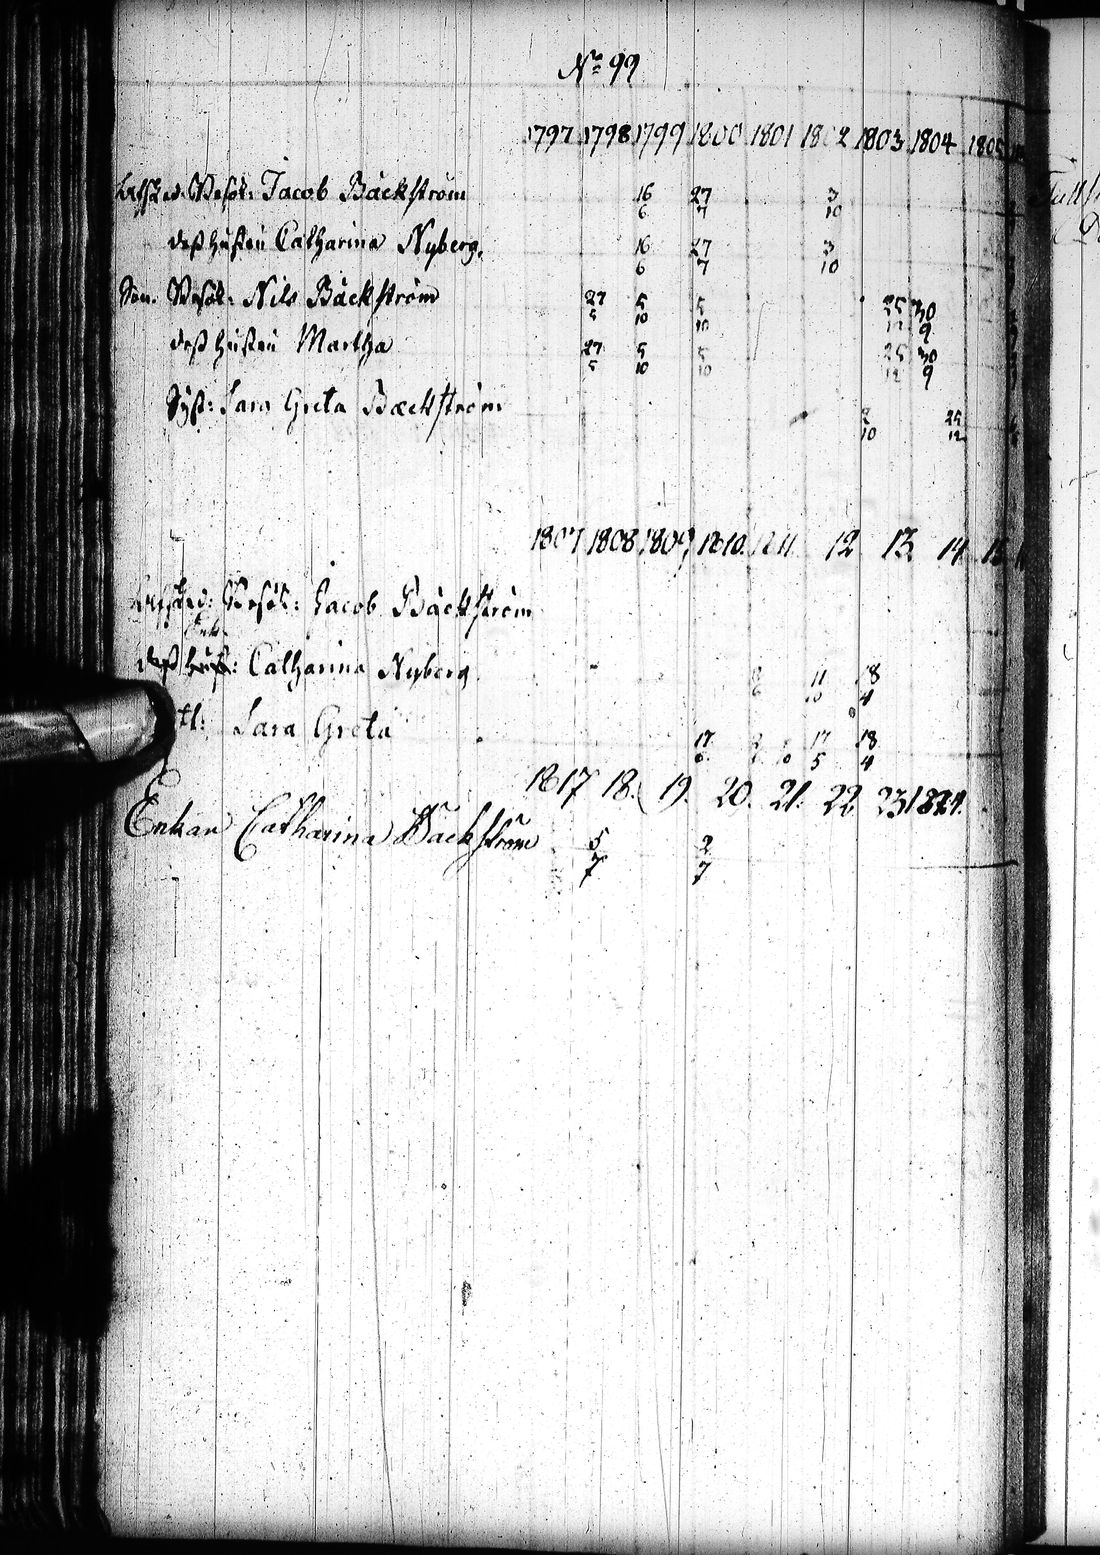 No 99
1797 1798 1799 1800 1801 1802 1803 1804 1805
Afsked: Besök: Jacob Bäckström 16/6 27/7 3/10
dess hustru Catharina Nyberg. 16/6 27/7 3/10
Son. Besök: Nils Bäckström 27/5 5/10 5/10 25/12 30/9
dess hustru Martha 27/5 5/10 5/10 25/12 30/9
Syst: Sara Greta Bäckström 2/10 25/12
1807 1808 1809 1810 1811 12 13 14 15
Afsked: Besök: Jacob Bäckström
Enk.
dess hust: Catharina Nyberg 11/10 18/4
Sara Greta 17/6 17/5 18/4
1817 18. 19. 20. 21. 22 23 1824.
Enkan Catharina Bäckström 5/7 2/7